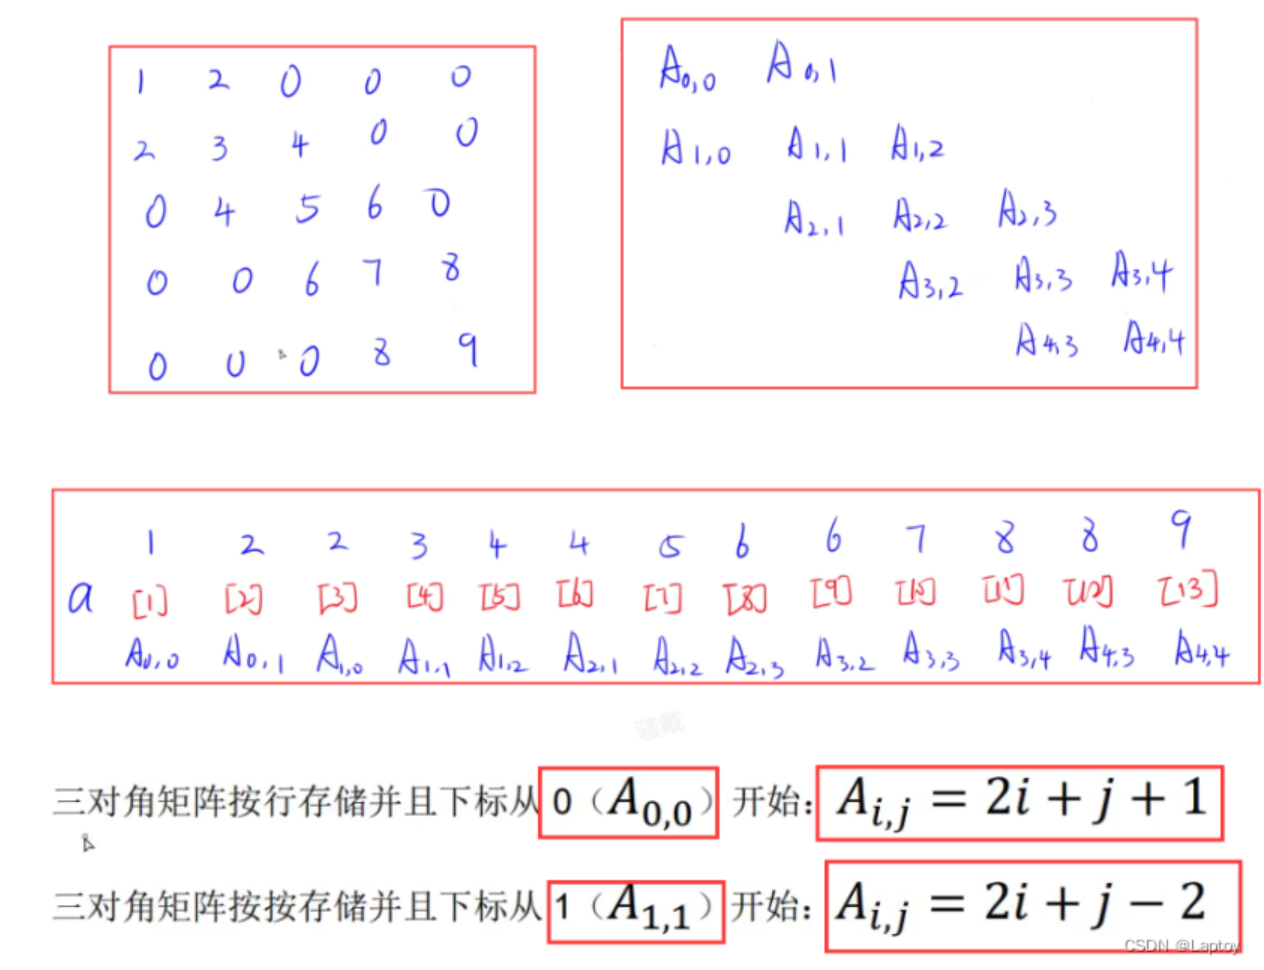 1 2 0 0 0
2 3 4 0 0
0 4 5 6 0
0 0 6 7 8
0 0 0 8 9
A0,0 A0,1
A1,0 A1,1 A1,2
A2,1 A2,2 A2,3
A3,2 A3,3 A3,4
A4,3 A4,4
1 2 2 3 4 4 5 6 6 7 8 8 9
a [1] [2] [3] [4] [5] [6] [7] [8] [9] [10] [11] [12] [13]
A0,0 A0,1 A1,0 A1,1 A1,2 A2,1 A2,2 A2,3 A3,2 A3,3 A3,4 A4,3 A4,4
骚戴
三对角矩阵按行存储并且下标从 0（A0,0）开始：Ai,j = 2i + j + 1
三对角矩阵按按存储并且下标从 1（A1,1）开始：Ai,j = 2i + j − 2
CSDN @Laptoy